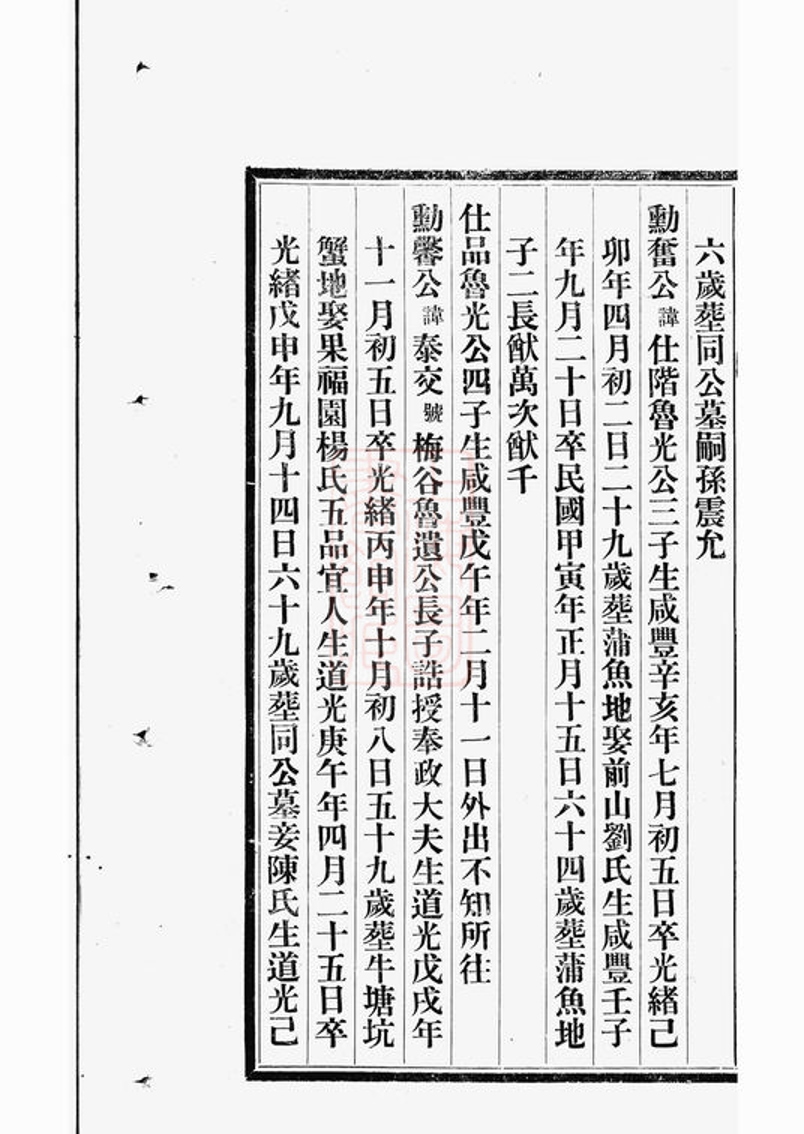 六歲塟同公墓嗣孫震允
勳奮公諱仕階魯光公三子生咸豐辛亥年七月初五日卒光緒己
卯年四月初二日二十九歲塟蒲魚地娶前山劉氏生咸豐壬子
年九月二十日卒民國甲寅年正月十五日六十四歲塟蒲魚地
子二長猷萬次猷千
仕品魯光公四子生咸豐戊午年二月十一日外出不知所往
勳馨公諱泰交號梅谷魯遺公長子誥授奉政大夫生道光戊戌年
十一月初五日卒光緒丙申年十月初八日五十九歲塟牛塘坑
蟹地娶果福園楊氏五品宜人生道光庚午年四月二十五日卒
光緒戊申年九月十四日六十九歲塟同公墓妾陳氏生道光己